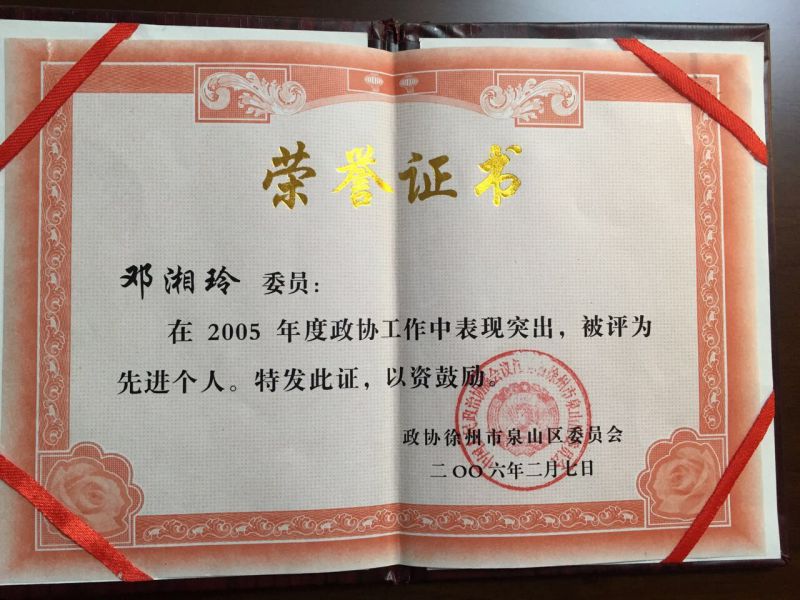 荣誉证书
邓湘玲 委员：
在 2005 年度政协工作中表现突出，被评为
先进个人。特发此证，以资鼓励。
政协徐州市泉山区委员会
二〇〇六年二月七日